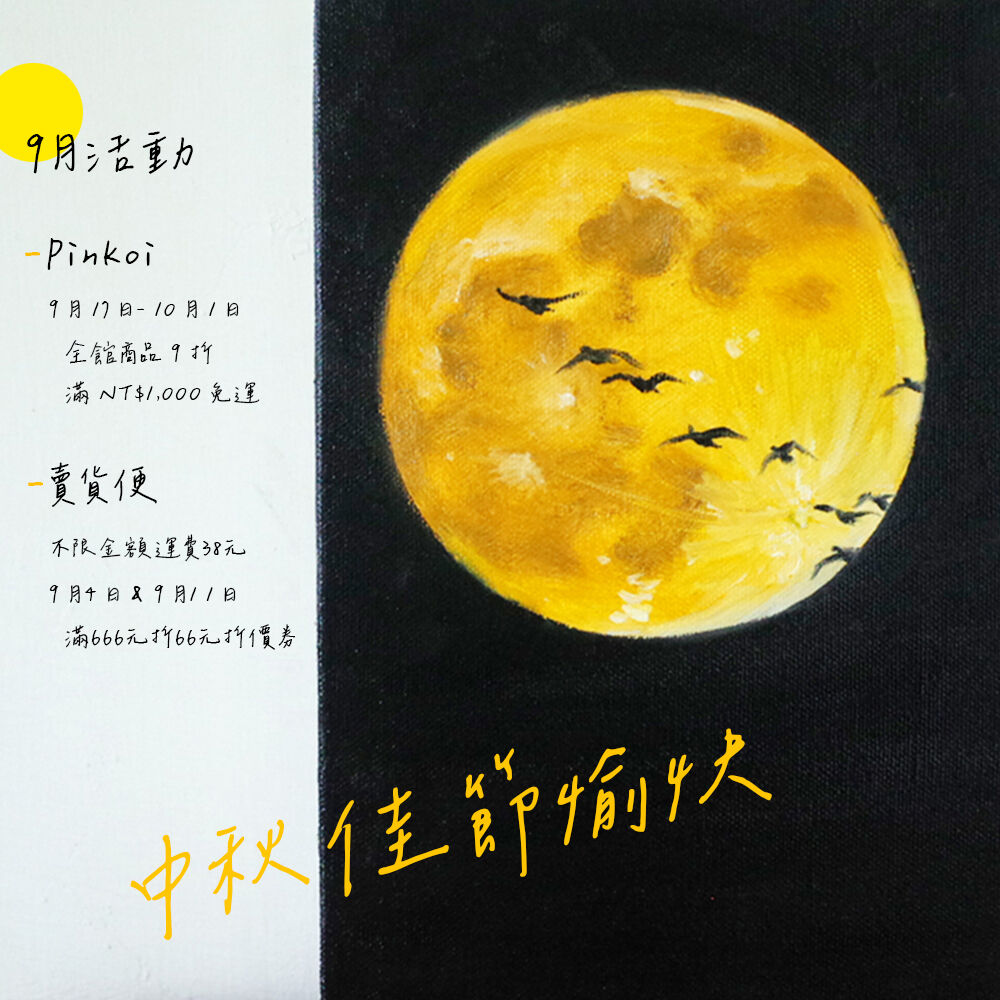 9月活動
-Pinkoi
9月17日-10月1日
全館商品9折
滿NT$1,000免運
-賣貨便
不限金額運費38元
9月4日&9月11日
滿666元折66元折價券
中秋佳節愉快